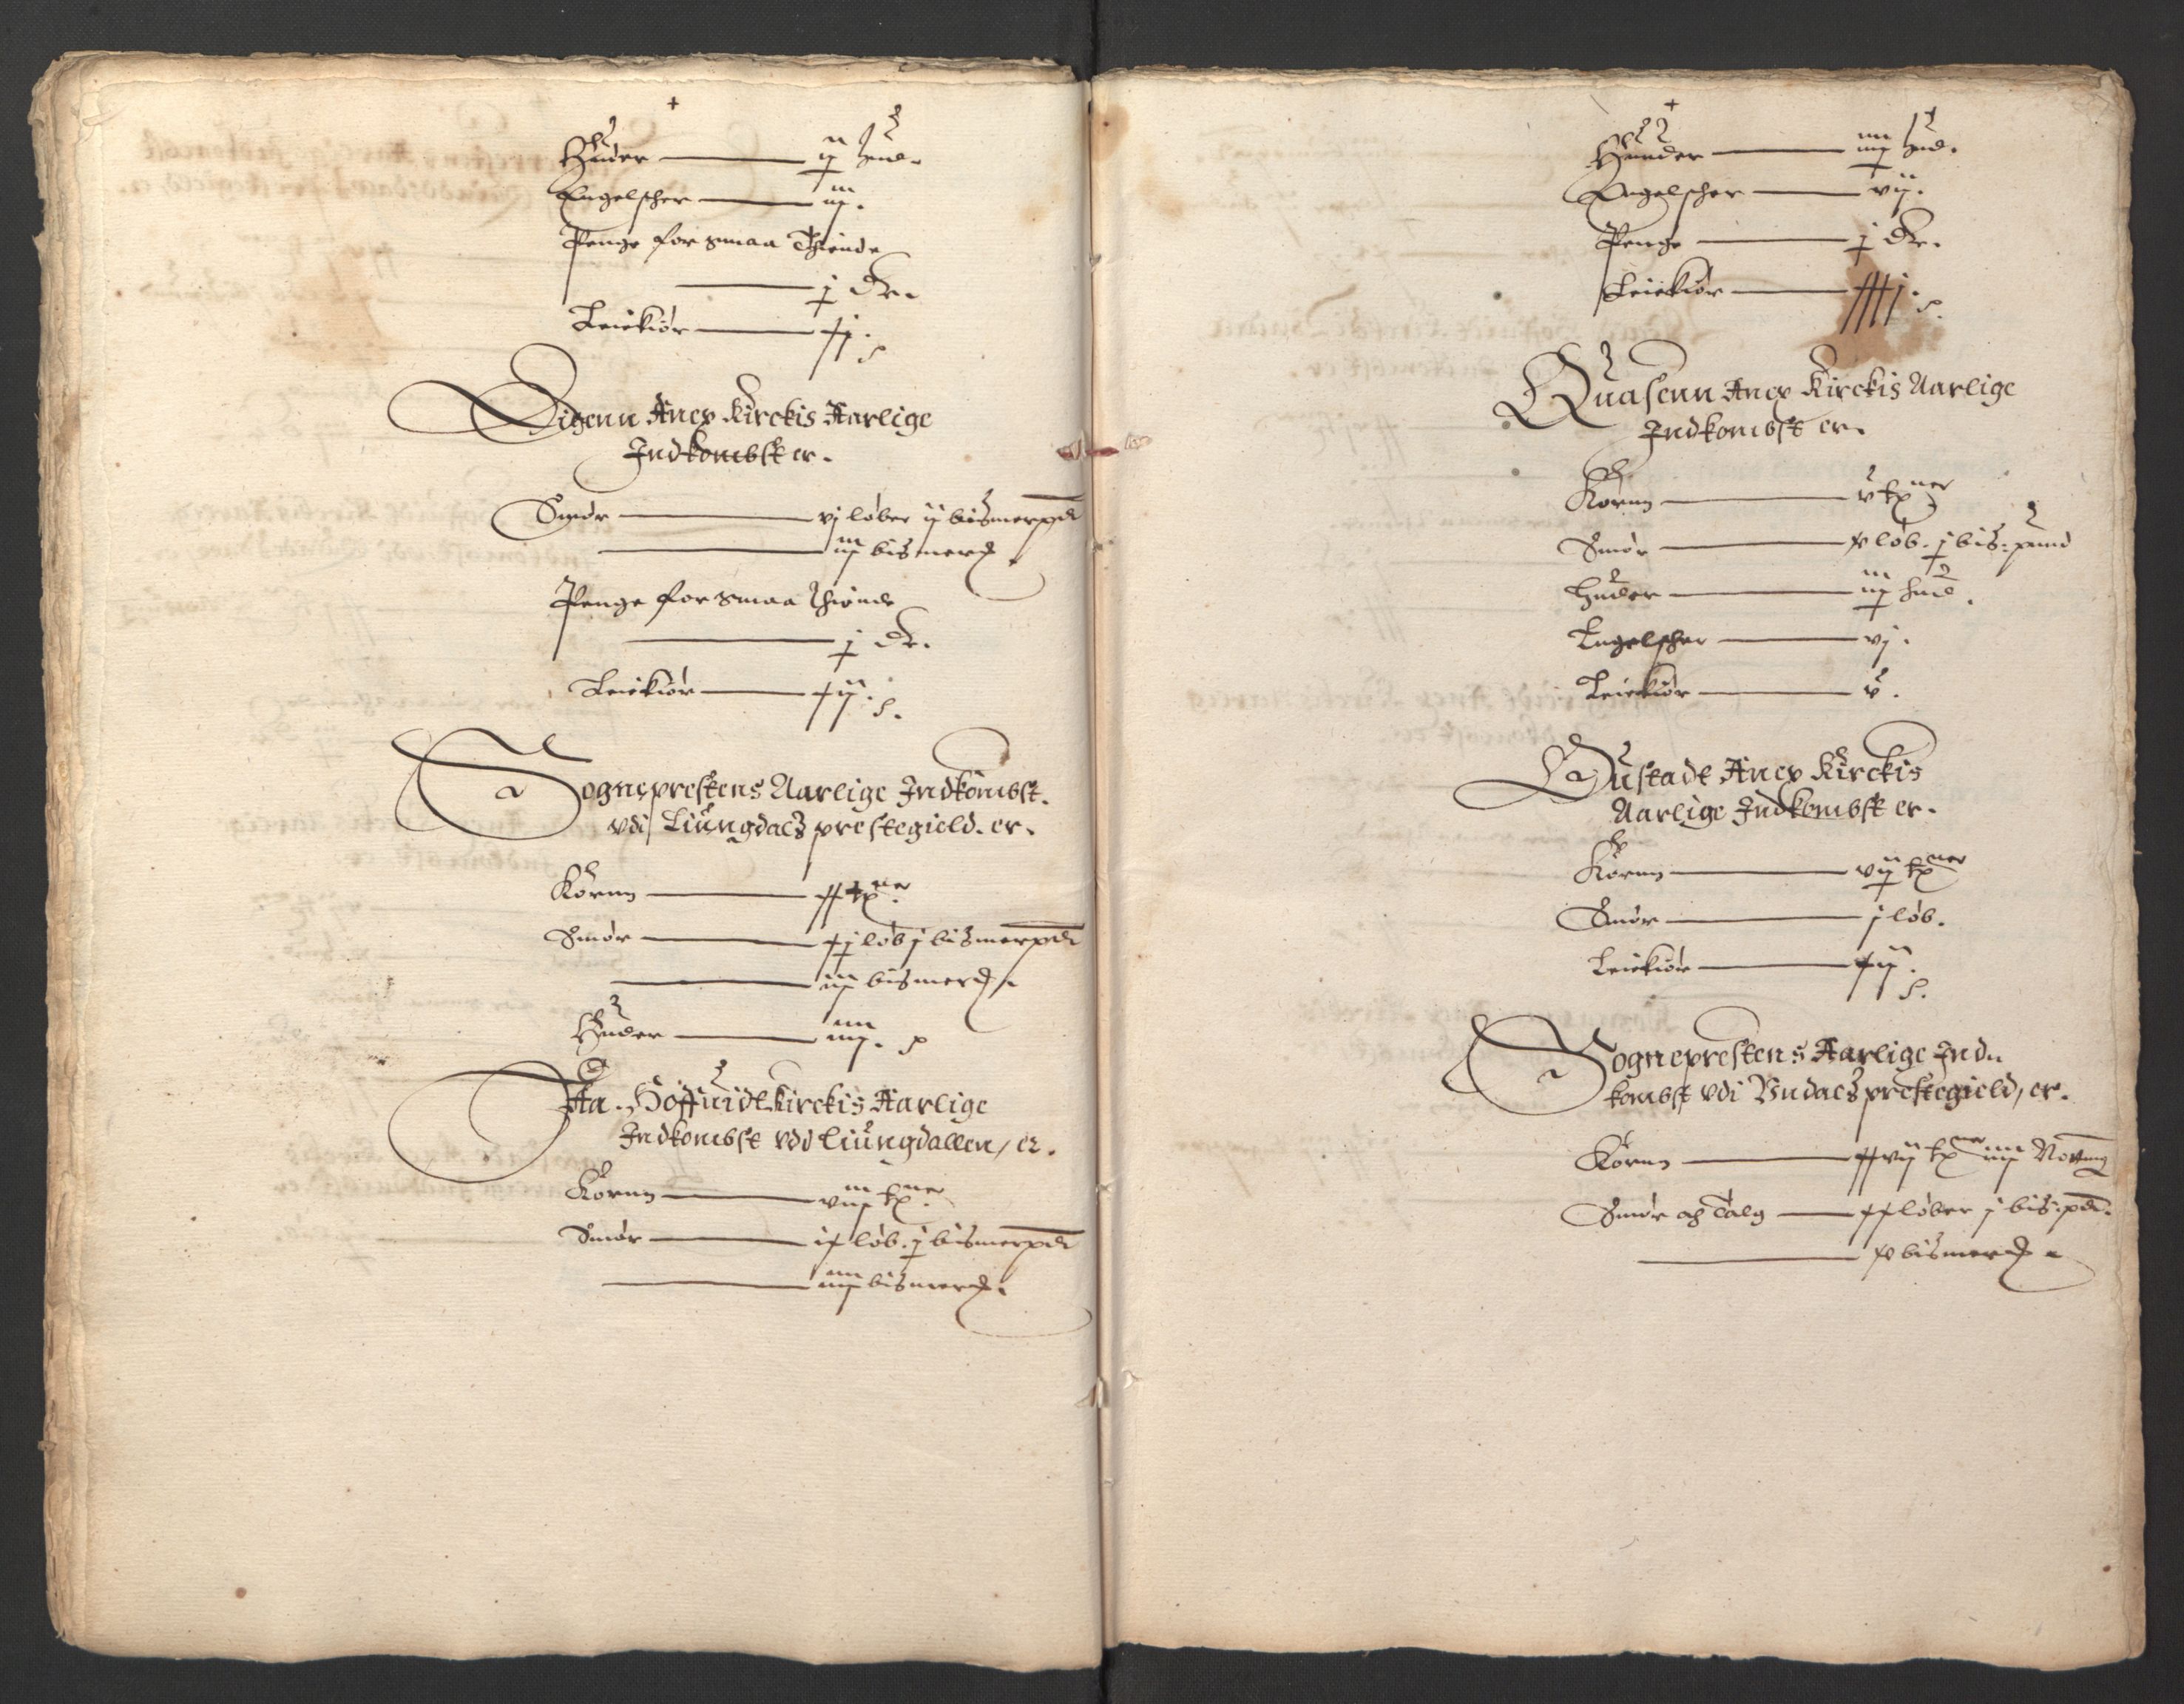 +
Huder — ij hud.
Engelscher — iij.
Penge for smaa Thiende
— j dr.
Leiekiør — xj. s.
Eigenn Anex Kirckis Aarlige
Indkombst er.
Smør — vj løber ij bismerpd
— iij bismer℔.
Penge for smaa Thiende
— j dr.
Leiekiør — xij. s.
Sogneprestens Aarlige Indkombst.
vdj Liungdals prestegield. er.
Kornn — xx tp ner.
Smør — xj løb j bismerpd
— iij bismer℔.
Huder — iiij.
Aa. Hoffuidt Kirckis Aarlige
Indkombst vdj Liungdallen, er.
Kornn — viij tp ner.
Smør — ix løb. j bismerpd
— iiij bismer℔.
+
Huuder — iiij hud.
Engelscher — vij.
Penge — j dr.
Leiekiør — xxxj. s.
Quasenn Anex Kirckis Aarlige
Indkombst er.
Kornn — v tp ner
Smør — xv løb. j bis: pund
Huder — iij hud.
Engelscher — vj.
Leiekiør — v.
Oustadt Anex Kirckis
Aarlige Indkombst er.
Kornn — vij tp ner
Smør — j løb.
Leiekiør — xij. s.
Sogneprestens Aarlige Ind-
kombst vdi Vndals prestegield, er.
Kornn — xxvij tp ner iiij
Smør och Talg — xx løber j bis: pd.
— xv bismer℔.